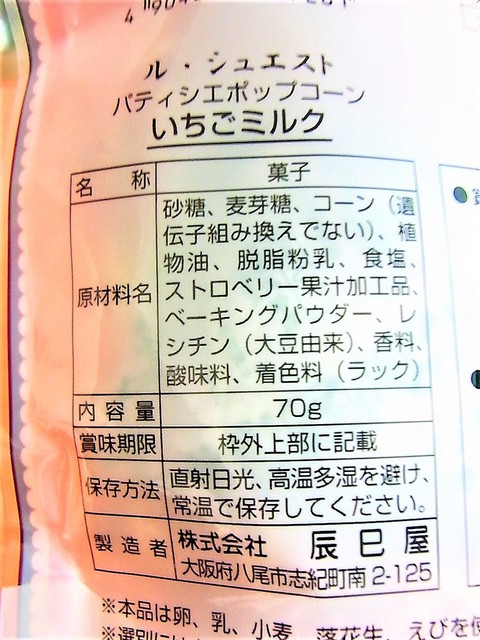 ル・シュエスト
パティシエポップコーン
いちごミルク
名 称 菓子
原材料名 砂糖、麦芽糖、コーン（遺
伝子組み換えでない）、植
物油、脱脂粉乳、食塩、
ストロベリー果汁加工品、
ベーキングパウダー、レ
シチン（大豆由来）、香料、
酸味料、着色料（ラック）
内容量 70g
賞味期限 枠外上部に記載
保存方法 直射日光、高温多湿を避け、
常温で保存してください。
製造者 株式会社 辰巳屋
大阪府八尾市志紀町南2-125
※本品は卵、乳、小麦、落花生、えびを使